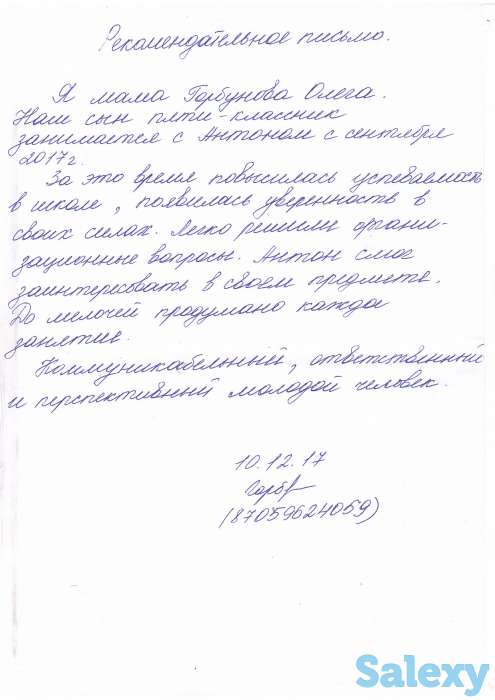 Рекомендательное письмо.
Я мама Горбунова Олега.
Наш сын пяти-классник
занимается с Антоном с сентября
2017г.
За это время повысилась успеваемость
в школе, появилась уверенность в
своих силах. Легко решили органи-
зационные вопросы. Антон смог
заинтересовать в своем предмете.
До мелочей продумано каждое
занятие.
Коммуникабельный, ответственный
и перспективный молодой человек.
10.12.17
(87059624059)
Salexy